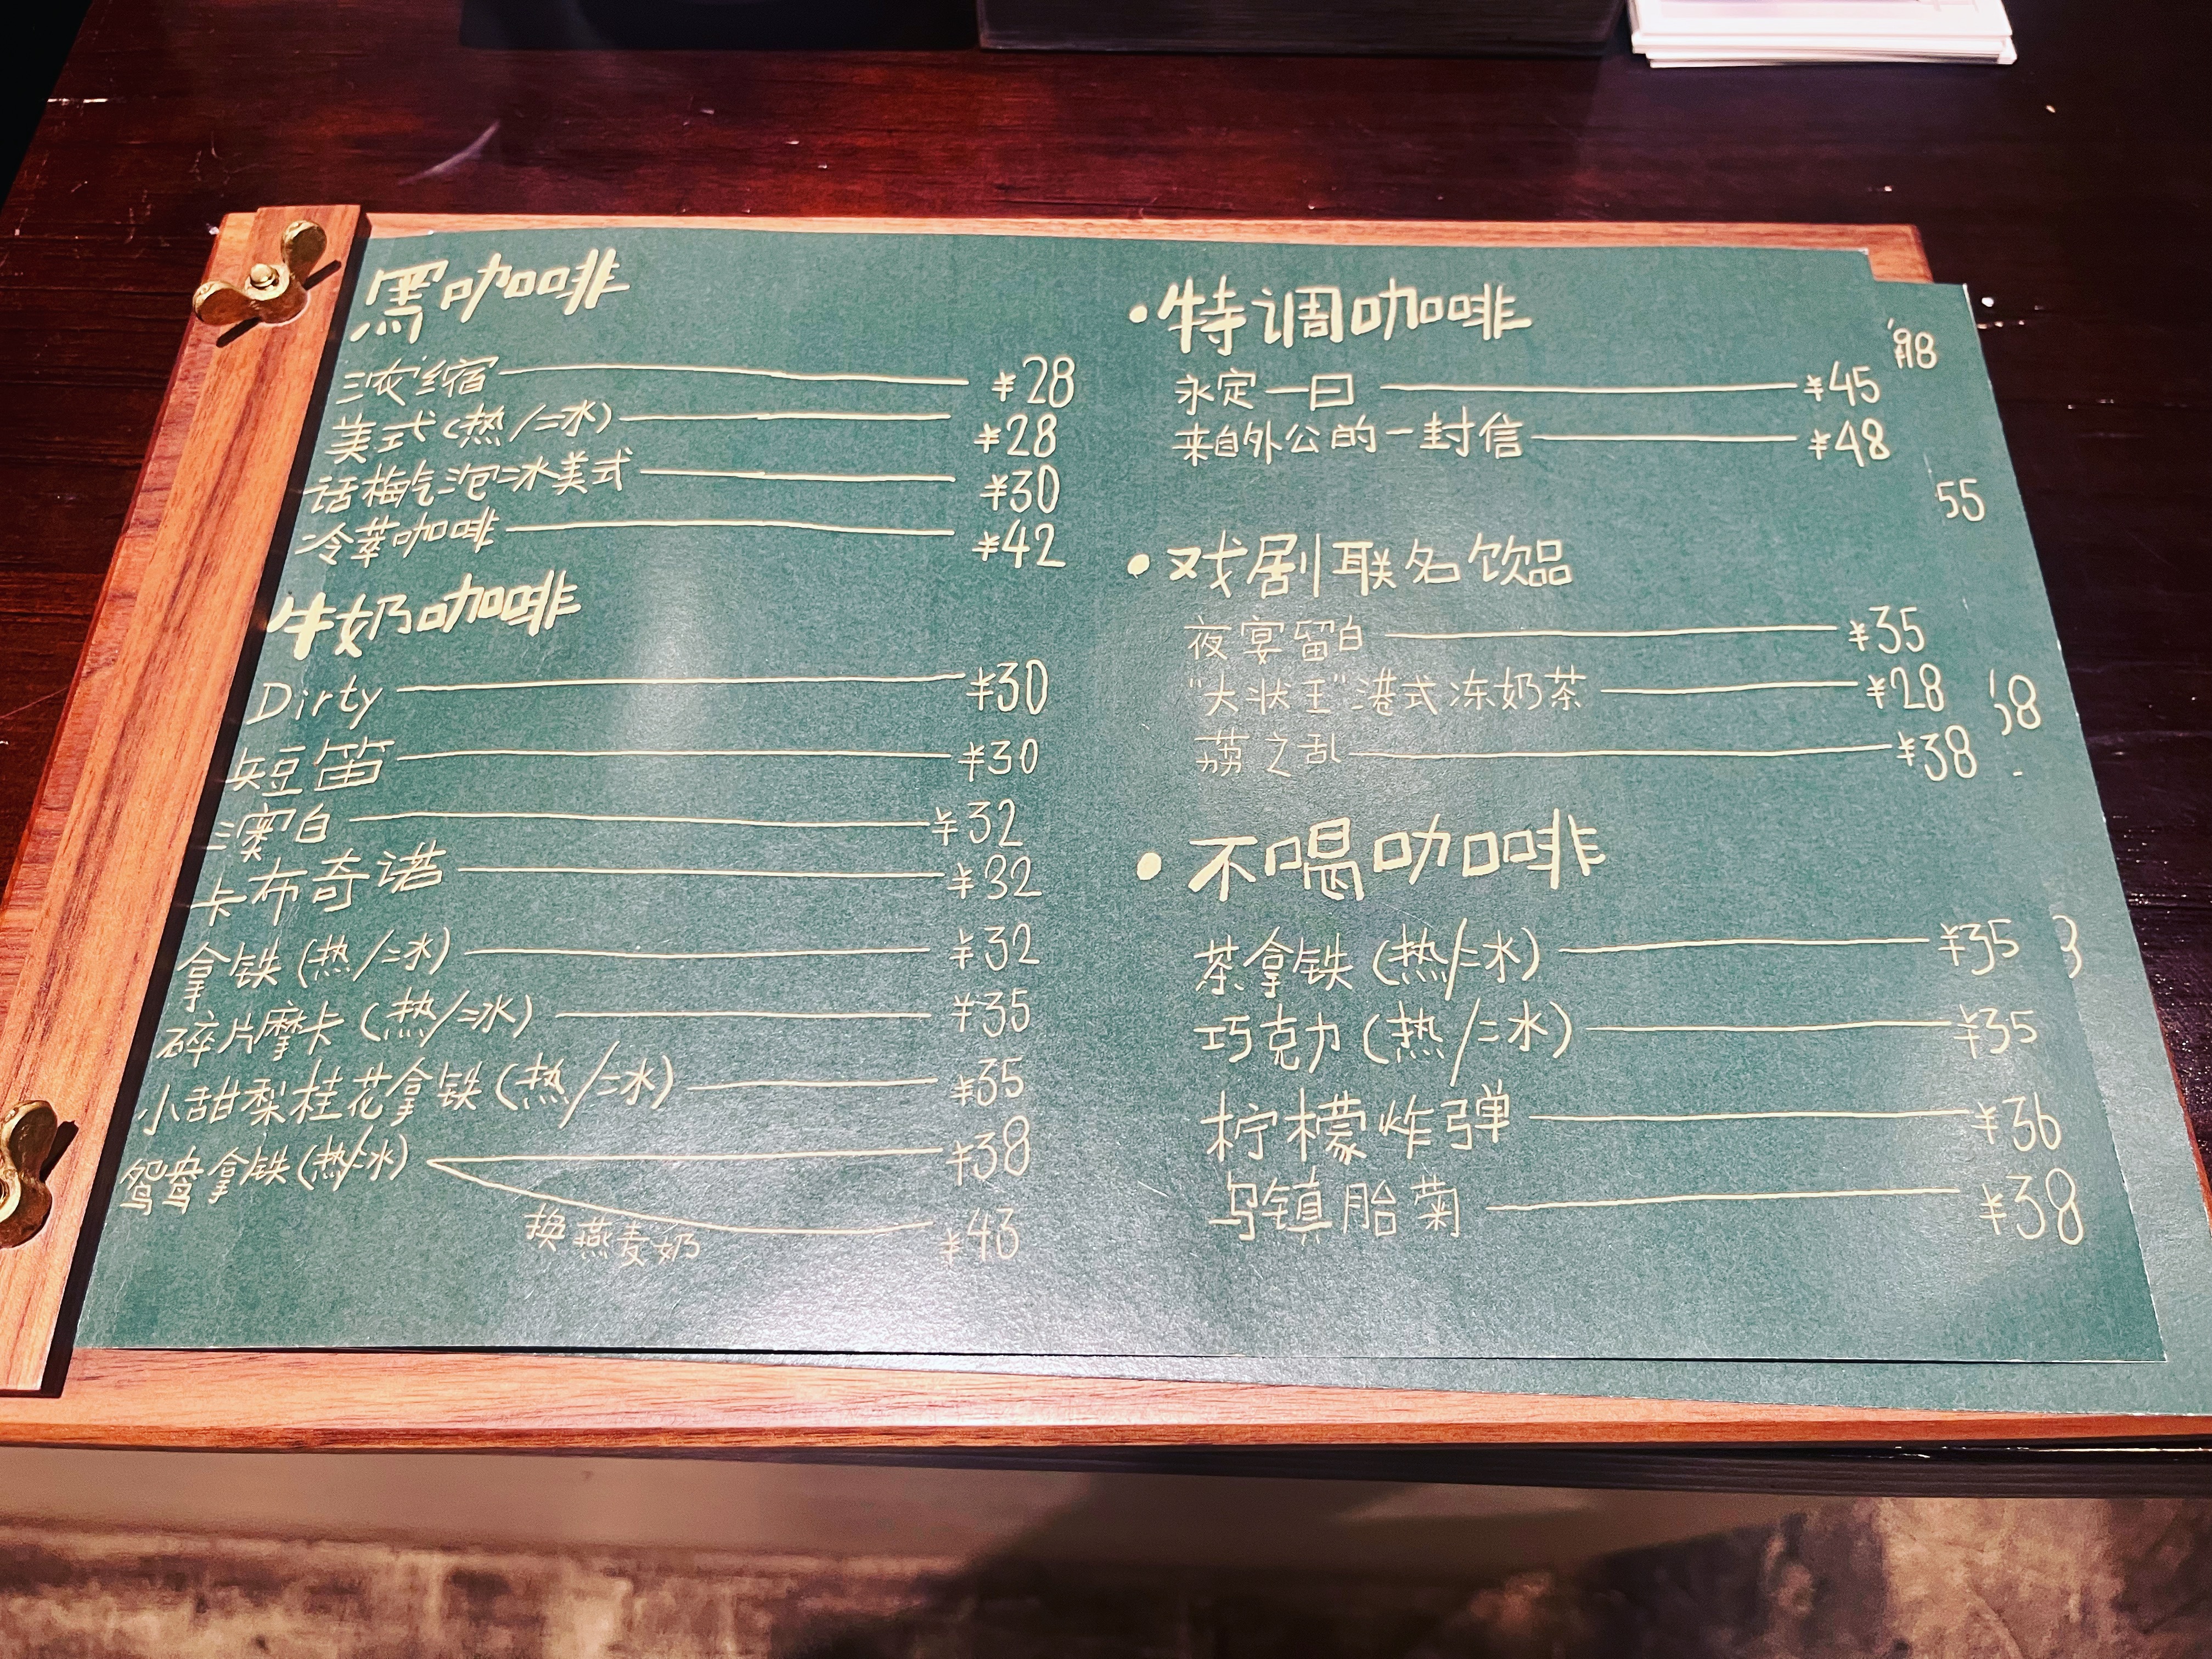 黑咖啡
浓缩 ¥28
美式(热/冰) ¥28
话梅气泡冰美式 ¥30
冷萃咖啡 ¥42
牛奶咖啡
Dirty ¥30
短笛 ¥30
澳白 ¥32
卡布奇诺 ¥32
拿铁(热/冰) ¥32
碎片摩卡(热/冰) ¥35
小甜梨桂花拿铁(热/冰) ¥35
鸳鸯拿铁(热/冰) ¥38
换燕麦奶 ¥43
·特调咖啡
永定一日 ¥45
来自外公的一封信 ¥48
·戏剧联名饮品
夜宴留白 ¥35
"大状王"港式冻奶茶 ¥28
荔之乱 ¥38
·不喝咖啡
茶拿铁(热/冰) ¥35
巧克力(热/冰) ¥35
柠檬炸弹 ¥36
乌镇胎菊 ¥38
55